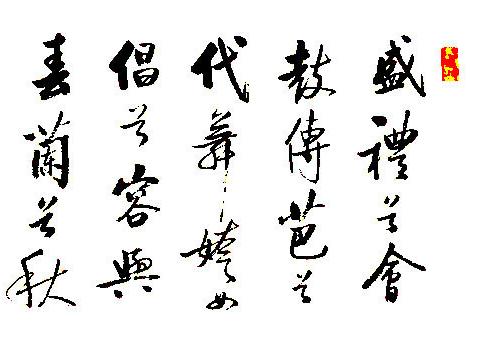 盛禮兮會
鼓傳芭兮
代舞姱女
倡兮容與
春蘭兮秋